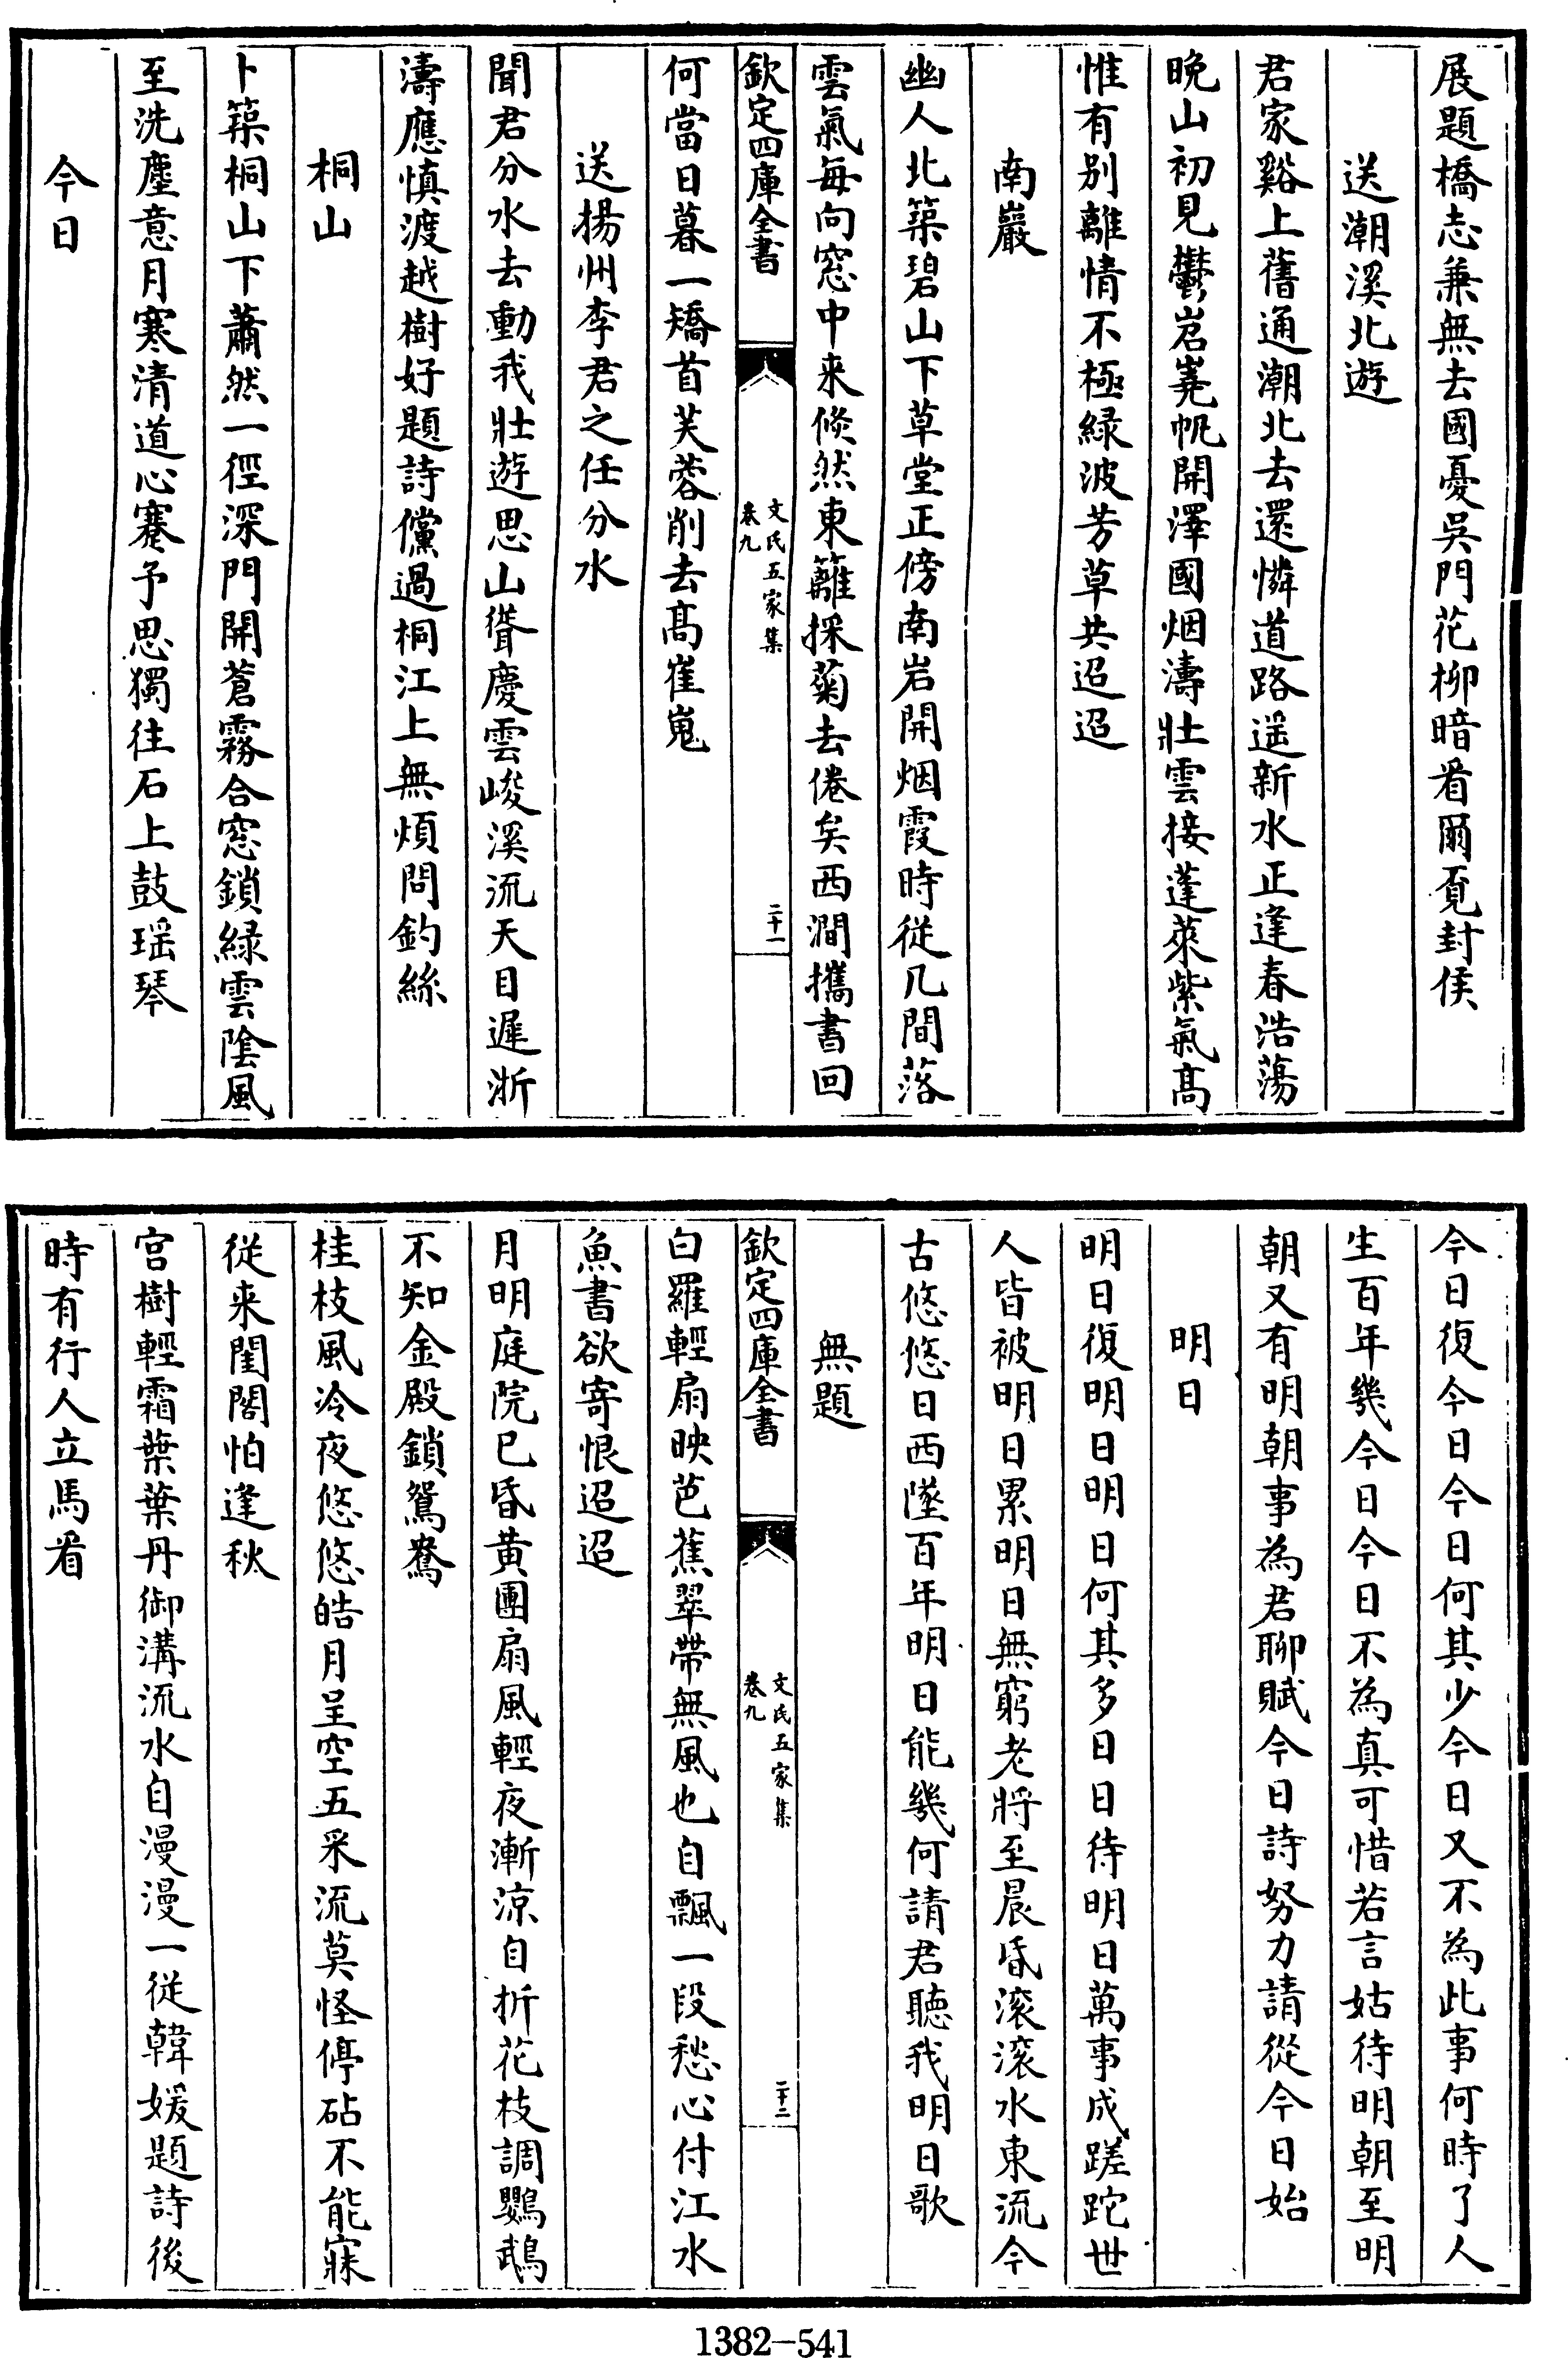 展題橋志兼無去國憂吳門花柳暗看爾覓封侯
送潮溪北遊
君家谿上舊通潮北去還憐道路遥新水正逢春浩蕩
晚山初見鬱岧嶤帆開澤國烟濤壯雲接蓬萊紫氣髙
惟有别離情不極緑波芳草共迢迢
南巖
幽人北築碧山下草堂正傍南岩開烟霞時從几間落
雲氣每向窓中来倏然東籬採菊去倦矣西澗攜書回
欽定四庫全書
文氏五家集
卷九
二十一
何當日暮一矯首芙蓉削去髙崔嵬
送揚州李君之任分水
聞君分水去動我壯遊思山聳慶雲峻溪流天目遲浙
濤應慎渡越樹好題詩儻過桐江上無煩問釣絲
桐山
卜築桐山下蕭然一徑深門開蒼霧合窓鎖緑雲陰風
至洗塵意月寒清道心蹇予思獨往石上鼓瑶琴
今日
今日復今日今日何其少今日又不為此事何時了人
生百年幾今日今日不為真可惜若言姑待明朝至明
朝又有明朝事為君聊賦今日詩努力請從今日始
明日
明日復明日明日何其多日日待明日萬事成蹉跎世
人皆被明日累明日無窮老將至晨昏滚滚水東流今
古悠悠日西墜百年明日能幾何請君聽我明日歌
無題
欽定四庫全書
文氏五家集
卷九
二十二
白羅輕扇映芭蕉翠帶無風也自飄一段愁心付江水
魚書欲寄恨迢迢
月明庭院已昏黄團扇風輕夜漸涼自折花枝調鸚鵡
不知金殿鎖鴛鴦
桂枝風冷夜悠悠皓月呈空五采流莫怪停砧不能寐
從来閨閣怕逢秋
宫樹輕霜葉葉丹御溝流水自漫漫一從韓媛題詩後
時有行人立馬看
1382-541